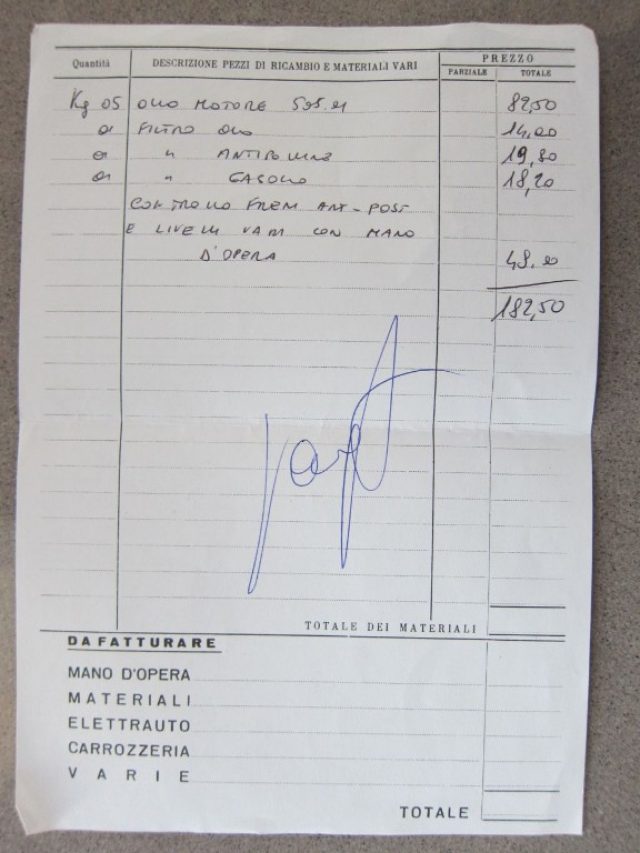 Quantità DESCRIZIONE PEZZI DI RICAMBIO E MATERIALI VARI PREZZO
PARZIALE TOTALE
Kg 05 OLIO MOTORE 505.01 82,50
01 FILTRO OLIO 14,00
01 " ANTIPOLLINE 19,80
01 " GASOLIO 18,20
CONTROLLO FRENI ANT-POST
E LIVELLI VARI CON MANO
D'OPERA 48,00
182,50
TOTALE DEI MATERIALI
DA FATTURARE
MANO D'OPERA
MATERIALI
ELETTRAUTO
CARROZZERIA
VARIE
TOTALE